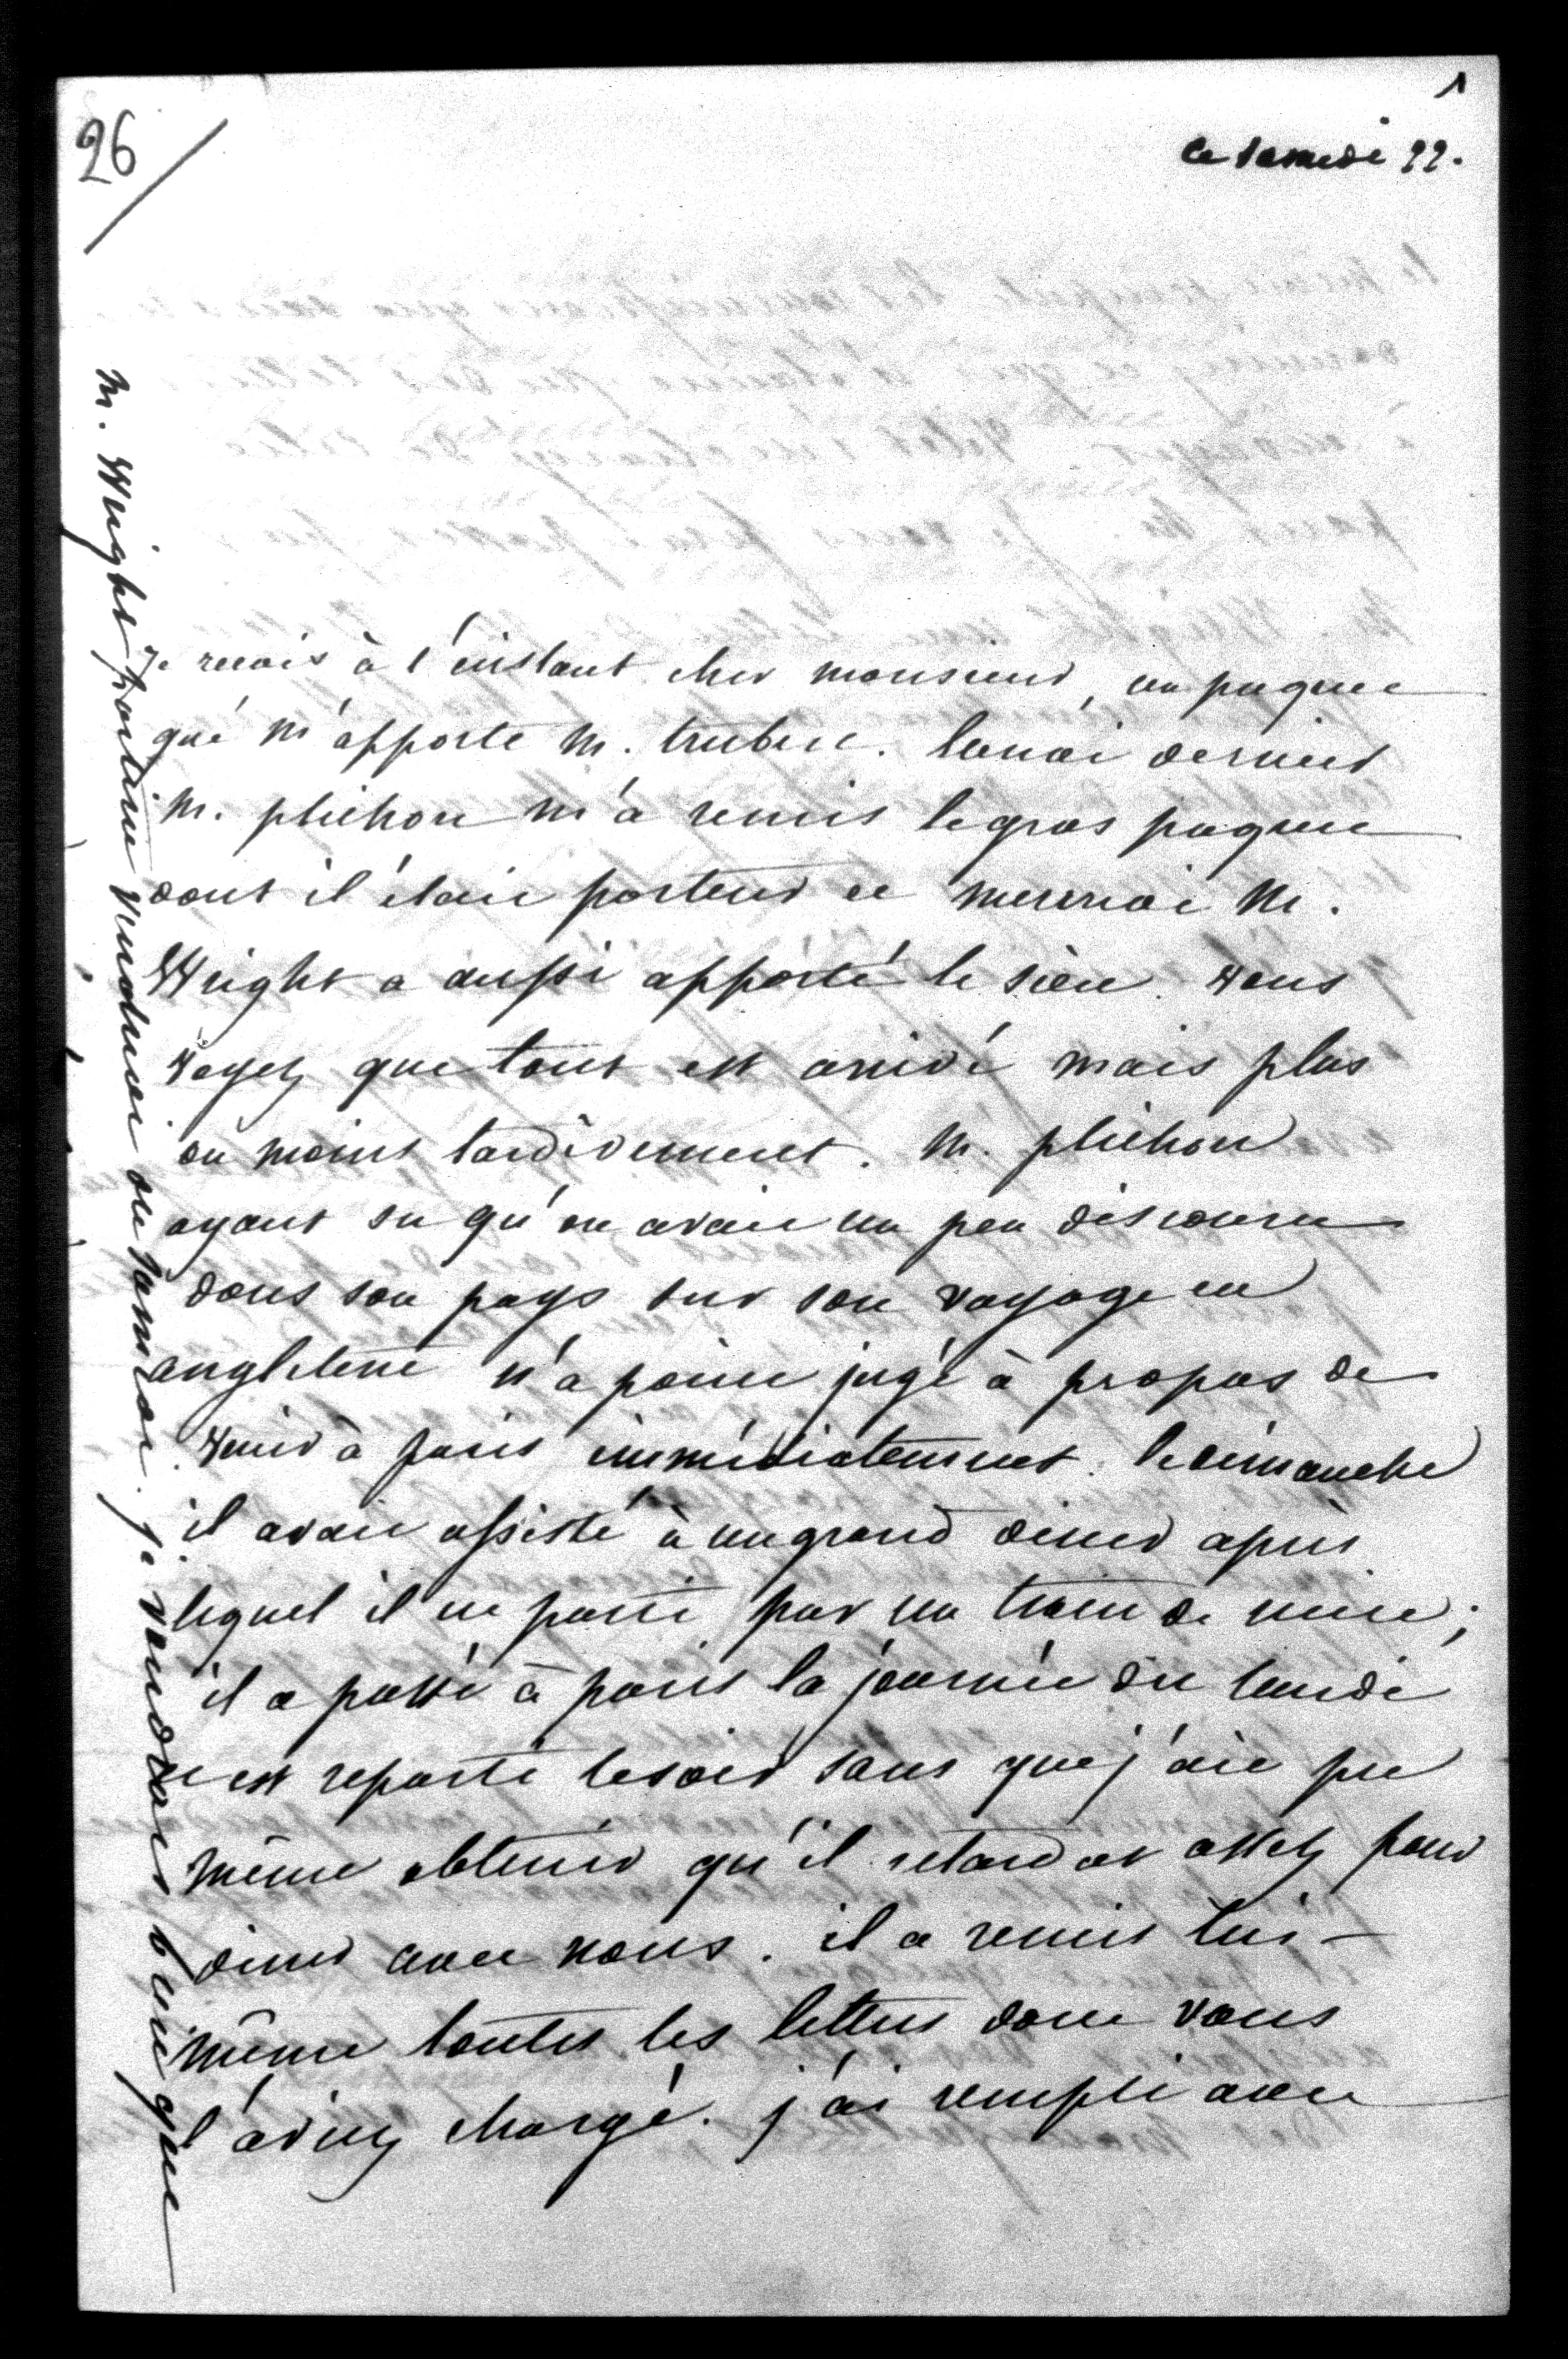 1
26
ce samedi 22.
Je reçois à l'instant cher monsieur, un paquet
que m'apporte M. trubert. lundi dernier
M. plichon m'a remis le gros paquet
dont il était porteur et mercredi M.
Wright a aussi apporté le sien. vous
voyez que tout est arrivé mais plus
ou moins tardivement. M. plichon
ayant su qu'on avait un peu discouru
dans son pays sur son voyage en
angleterre n'a point jugé à propos de
venir à paris immédiatement. le dimanche
il avait assisté à un grand diner après
lequel il est parti par un train de nuit;
il a passé à paris la journée du lundi
et est reparti le soir sans que j'aie pu
même obtenir qu'il retardat assez pour
diner avec nous. il a remis lui-
même toutes les lettres dont vous
l'aviez chargé. j'ai rempli avec
M. Wright partira vendredi ou samedi. je voudrais bien que